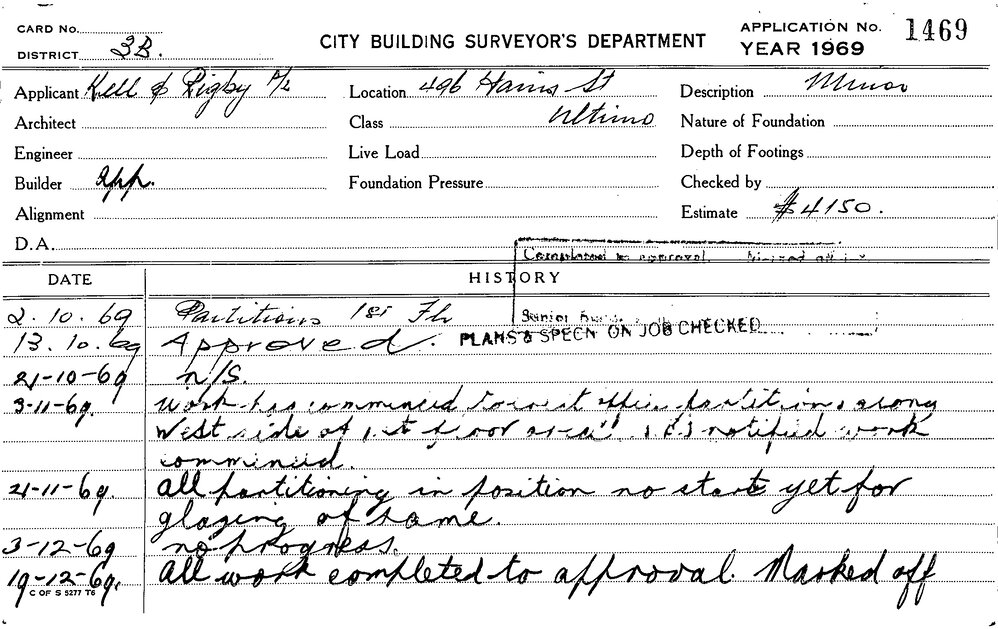 CARD No.
DISTRICT 3B.
CITY BUILDING SURVEYOR'S DEPARTMENT
APPLICATION No. 1469
YEAR 1969
Applicant Kell & Rigby P/L
Location 496 Harris St
Description Minor
Architect
Class Ultimo
Nature of Foundation
Engineer
Live Load
Depth of Footings
Builder app.
Foundation Pressure
Checked by
Alignment
Estimate $4150.
D.A.
Completed to approval. Marked off
DATE HISTORY
2.10.69 Partitions 1st Flr
Senior
13.10.69 Approved. PLANS & SPECN ON JOB CHECKED
21-10-69 N/S.
3-11-69. Work has commenced to erect office partitions along
West side of 1st floor area. notified work
commenced.
21-11-69. All partitioning in position no start yet for
glazing of same.
3-12-69 no progress.
19-12-69. All work completed to approval. Marked off
C OF S 5277 T6